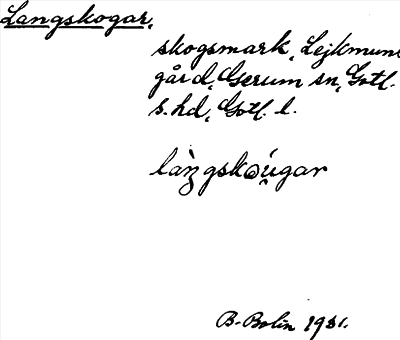 Langskogar,
skogsmark, Lejkmuns
gård, Gerum sn, Gotl.
s. hd, Gotl. l.
làŋgskǝúgar
B. Bolin 1931.